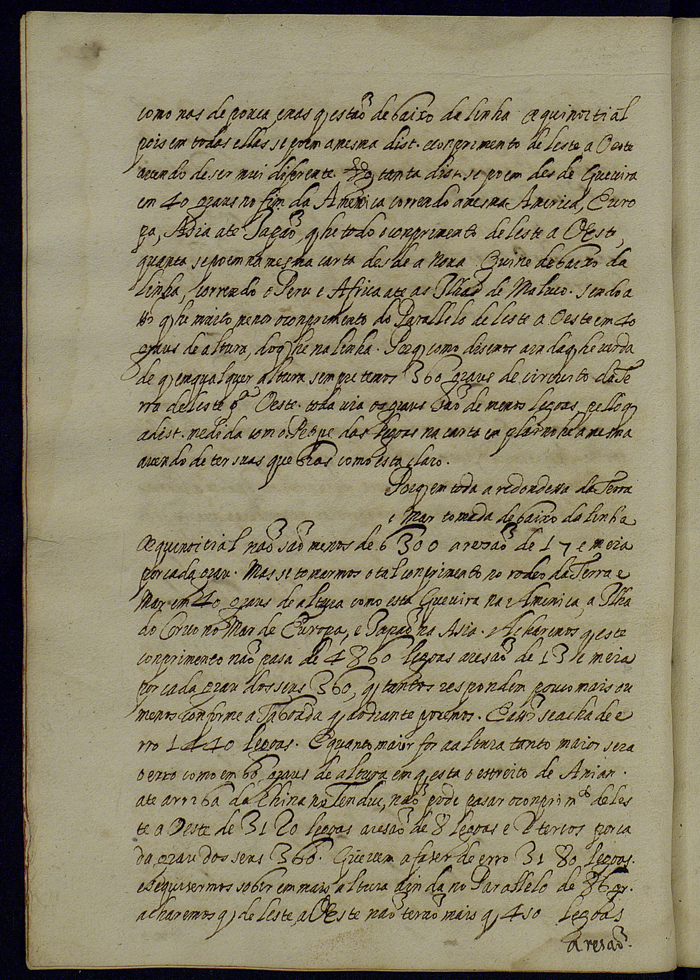 como nas de pouca, e nas q̃ estaõ de baixo da linha æquinoctial
pois em todas ellas se poem a mesma dist. e conprimento de leste a Oeste
avendo de ser mui diferente. tanta dist. se poem des de Queuira
em 40 graus no fim da America correndo a mesma America, Euro
pa, Asia ate Iapaõ, q̃ he todo o conprimento de leste a Oeste,
quanta se poem na mesma carta desde a Noua Guine de baixo da
linha, correndo o Peru e Africa ate as Ilhas de Maluco. sendo a
q̃ he muito menor o conprimento do Parallelo de leste a Oeste em 40
graus de altura, do q̃ he na linha. Porq̃ como disemos ainda q̃ he verda
de q̃ em qualquer altura sempre temos 360 graus de circuito da Te
rra de leste Oeste. toda via os graus saõ de menos legoas, pello q̃
a dist. medida com o Petipe das legoas na carta em plaino he a mesma
avendo de ter suas quebras como esta claro.
Porq̃ em toda a redondeza da Terra
e Mar tomada de baixo da linha
Æquenoctial naõ saõ menos de 6300 a resaõ de 17 e meia
por cada grau. Mas se tomarmos o tal conprimento no rodeo da Terra e
Mar em 40 graus de altura como esta Queuira na America, a Ilha
do Coruo no Mar de Europa, e Iapaõ na Asia. Acharemos q̃ este
conprimento naõ pasa de 4860 legoas a resaõ de 13 e meia
por cada grau dos seus 360, q̃ tantos respondem pouco mais ou
menos conforme a Taboada q̃ adiante poremos. E asi se acha de e
rro 1440 legoas. E quanto maior for a altura tanto maior sera
o erro como em 60 graus de altura em q̃ esta o estreito de Anian.
ate arriba da China no Tenduc, naõ pode pasar o conprim.to de les
te a Oeste de 3120 legoas a resaõ de 8 legoas e 2 tercos por ca
da grau dos seus 360. Que vem a fazer de erro 3180 legoas.
e se quisermos sobir em mais altura ainda no Parallelo de 86 gr.
acharemos q̃ de leste a Oeste naõ teraõ mais q̃ 450 legoas
a resaõ.